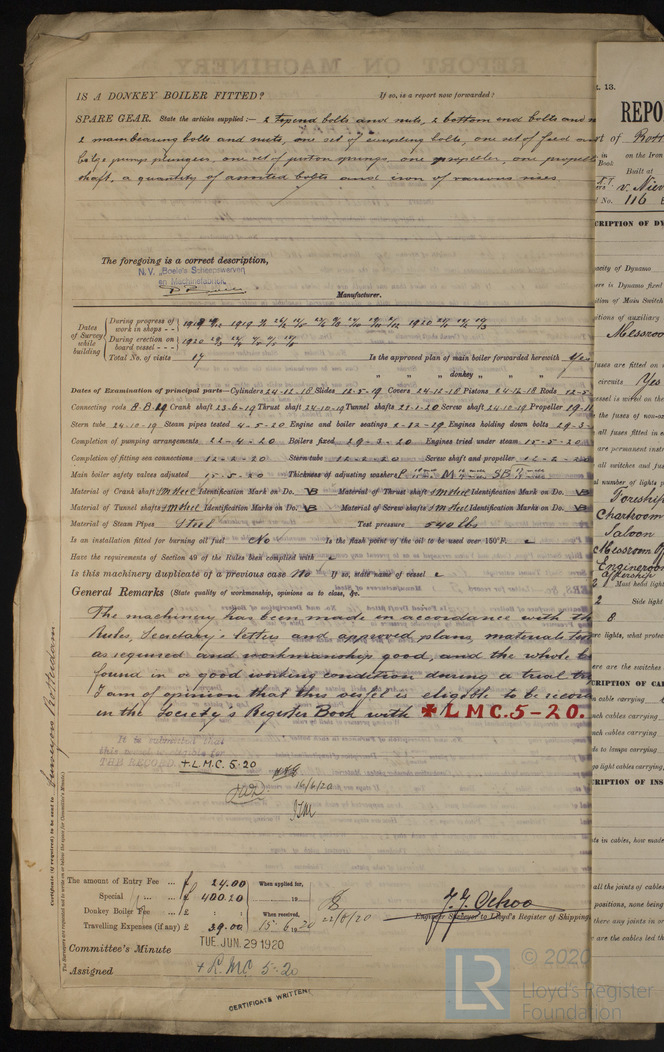 IS A DONKEY BOILER FITTED? If so, is a report now forwarded?
SPARE GEAR. State the articles supplied:— 2 topend bolts and nuts, 2 bottom end bolts and
2 mainbearing bolts and nuts, one set of coupling bolts, one set of feed and
bilge pumps plungers, one set of piston springs, one propeller, one propeller
shaft, a quantity of assorted bolts and iron of various sizes.
The foregoing is a correct description,
N.V. „Boele's Scheepswerven
en Machinefabriek"
Manufacturer.
Dates of Survey while building
During progress of work in shops - -
During erection on board vessel - - -
Total No. of visits 17
Is the approved plan of main boiler forwarded herewith Yes
" " " donkey " "
Dates of Examination of principal parts—Cylinders 24-12-18 Slides 12-5-19 Covers 24-12-18 Pistons 24-12-18 Rods 12-5-
Connecting rods Crank shaft 23-6-19 Thrust shaft 24-10-19 Tunnel shafts 21-1-20 Screw shaft 24-10-19 Propeller
Stern tube 24-10-19 Steam pipes tested 4-5-20 Engine and boiler seatings 2-12-19 Engines holding down bolts 29-3-
Completion of pumping arrangements 22-4-20 Boilers fixed 29-3-20 Engines tried under steam 15-5-20
Completion of fitting sea connections 12-2-20 Stern tube 12-2-20 Screw shaft and propeller 12-2-20
Main boiler safety valves adjusted 15-5-20 Thickness of adjusting washers
Material of Crank shaft SM Steel Identification Mark on Do. VB Material of Thrust shaft SM Steel Identification Mark on Do. VB
Material of Tunnel shafts SM Steel Identification Mark on Do. VB Material of Screw shafts SM Steel Identification Marks on Do. VB
Material of Steam Pipes Steel Test pressure 540 lbs
Is an installation fitted for burning oil fuel No Is the flash point of the oil to be used over 150°F.
Have the requirements of Section 49 of the Rules been complied with
Is this machinery duplicate of a previous case No If so, state name of vessel
General Remarks (State quality of workmanship, opinions as to class, &c.
The machinery has been made in accordance with the
Rules, Secretary's letters and approved plans, materials
as required and workmanship good, and the whole
found in a good working condition during a trial
I am of opinion that this vessel is eligible to be
in the Society's Register Book with ✠ L M C. 5-20.
It is submitted that
this vessel is eligible for
THE RECORD. + L.M.C. 5-20
16/6/20
The amount of Entry Fee ... £ 24.00 When applied for,
Special " ... £ 400.20
Donkey Boiler Fee ... £ : : When received,
Travelling Expenses (if any) £ 39.00 15-6-1920
22/6/20
J. J. Ochoa
Engineer Surveyor to Lloyd's Register of Shipping
Committee's Minute TUE. JUN. 29 1920
Assigned + L.M.C. 5-20
CERTIFICATE WRITTEN
Certificate (if required) to be sent to Surveyors Rotterdam
(The Surveyors are requested not to write on or below the space for Committee's Minute.)
13.
REPO
on the Iron
Built at
No. 116
CRIPTION OF DY
acity of Dynamo
ere is Dynamo fixed
ition of Main Switch
itions of auxiliary
Messroo
fuses are fitted on
circuits Yes
vessel is wired on the
the fuses of non-ox
all fuses fitted in
are permanent inst
all switches and fus
al number of lights p
Foreship
Chartroom
Saloon
Messroom
Engineroom
Aftership
2 Mast head light
2 Side light
8
re lights, what protec
ere are the switches
CRIPTION OF CA
cable carrying
nch cables carrying
nch cables carrying
ds to lamps carrying
go light cables carrying
CRIPTION OF INS
ts in cables, how made
all the joints of cables
positions, none being
there any joints in or
are the cables led th
LR
© 2020
Lloyd's Register
Foundation